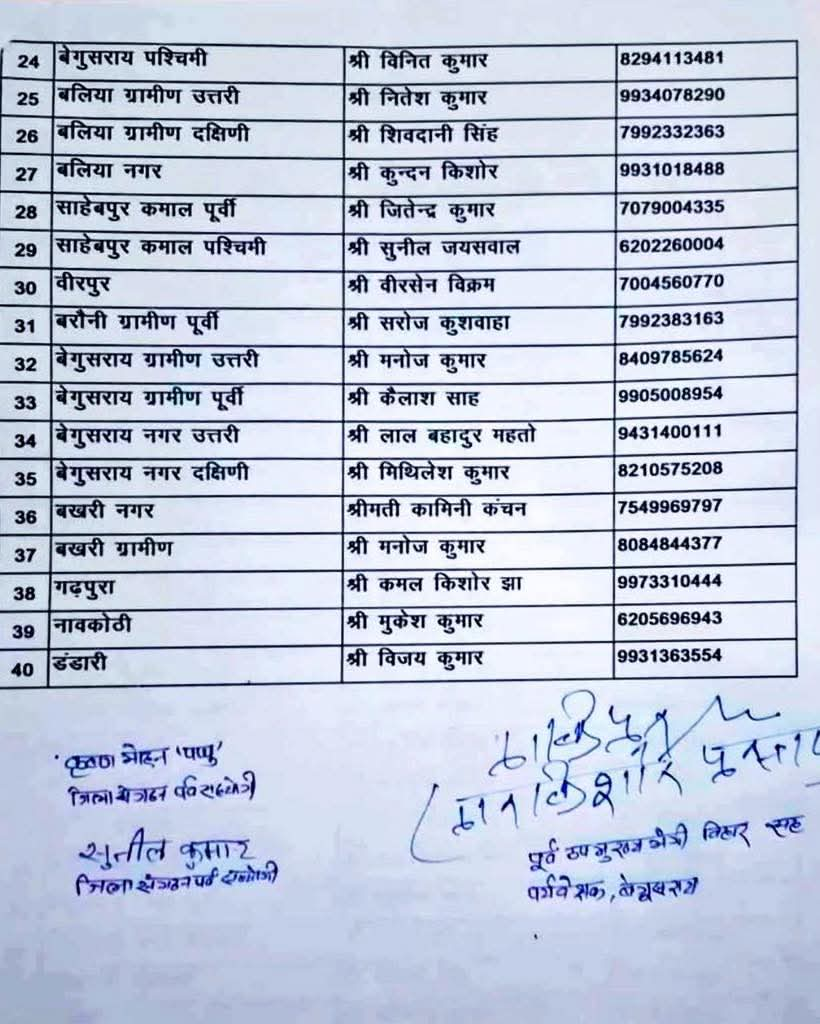 24 बेगुसराय पश्चिमी श्री विनित कुमार 8294113481
25 बलिया ग्रामीण उत्तरी श्री नितेश कुमार 9934078290
26 बलिया ग्रामीण दक्षिणी श्री शिवदानी सिंह 7992332363
27 बलिया नगर श्री कुन्दन किशोर 9931018488
28 साहेबपुर कमाल पूर्वी श्री जितेन्द्र कुमार 7079004335
29 साहेबपुर कमाल पश्चिमी श्री सुनील जयसवाल 6202260004
30 वीरपुर श्री वीरसेन विक्रम 7004560770
31 बरौनी ग्रामीण पूर्वी श्री सरोज कुशवाहा 7992383163
32 बेगुसराय ग्रामीण उत्तरी श्री मनोज कुमार 8409785624
33 बेगुसराय ग्रामीण पूर्वी श्री कैलाश साह 9905008954
34 बेगुसराय नगर उत्तरी श्री लाल बहादुर महतो 9431400111
35 बेगुसराय नगर दक्षिणी श्री मिथिलेश कुमार 8210575208
36 बखरी नगर श्रीमती कामिनी कंचन 7549969797
37 बखरी ग्रामीण श्री मनोज कुमार 8084844377
38 गढ़पुरा श्री कमल किशोर झा 9973310444
39 नावकोठी श्री मुकेश कुमार 6205696943
40 डंडारी श्री विजय कुमार 9931363554
कृष्ण मोहन 'पप्पु'
जिला संगठन पर्व सहयोगी
सुनील कुमार
जिला संगठन पर्व सहयोगी
पूर्व उपमुख्यमंत्री बिहार सह
पर्यवेक्षक, बेगूसराय